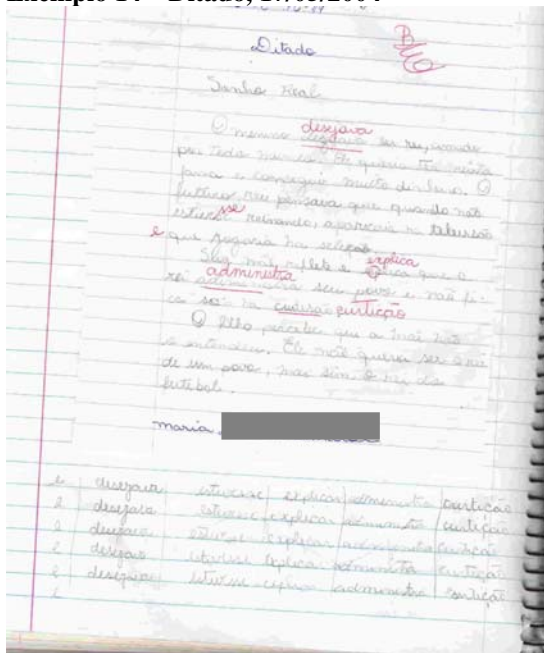 Exemplo 14 – Ditado, 17/05/2004
Ditado
B
Sonho Real
desejava
O menino ser rei, mundo
por todo mundo. Ele queria ter muita
fama e conseguir muito dinheiro. O
futuro rei pensava que quando não
se
reinando, apareceria na televisão
e que jogaria na seleção.
explica
Sua mãe reflete e que o
administra
rei seu povo e não fi-
ca só na curtição
O filho percebe que a mãe não
o entendeu. Ele não queria ser o rei
de um povo, mas sim o rei do
futebol.
maria
e desejava estivesse explica administra curtição
e desejava estivesse explica administra curtição
e desejava estivesse explica administra curtição
e desejava estivesse explica administra curtição
e desejava estivesse explica administra curtição
e